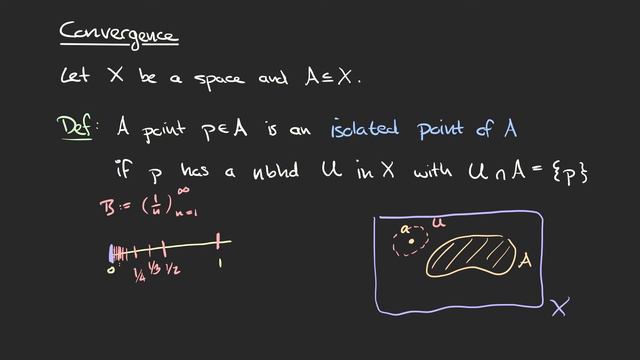 Convergence
Let X be a space and A ⊆ X.
Def: A point p ∈ A is an isolated point of A
if p has a nbhd U in X with U ∩ A = {p}
B := (1/n)_{n=1}^∞
0 1/4 1/3 1/2 1
a U
A
X